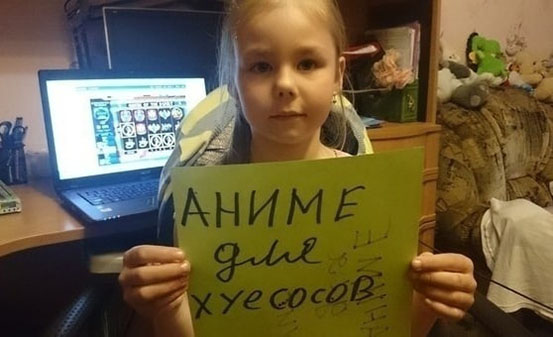 АНИМЕ
для
хуесосов